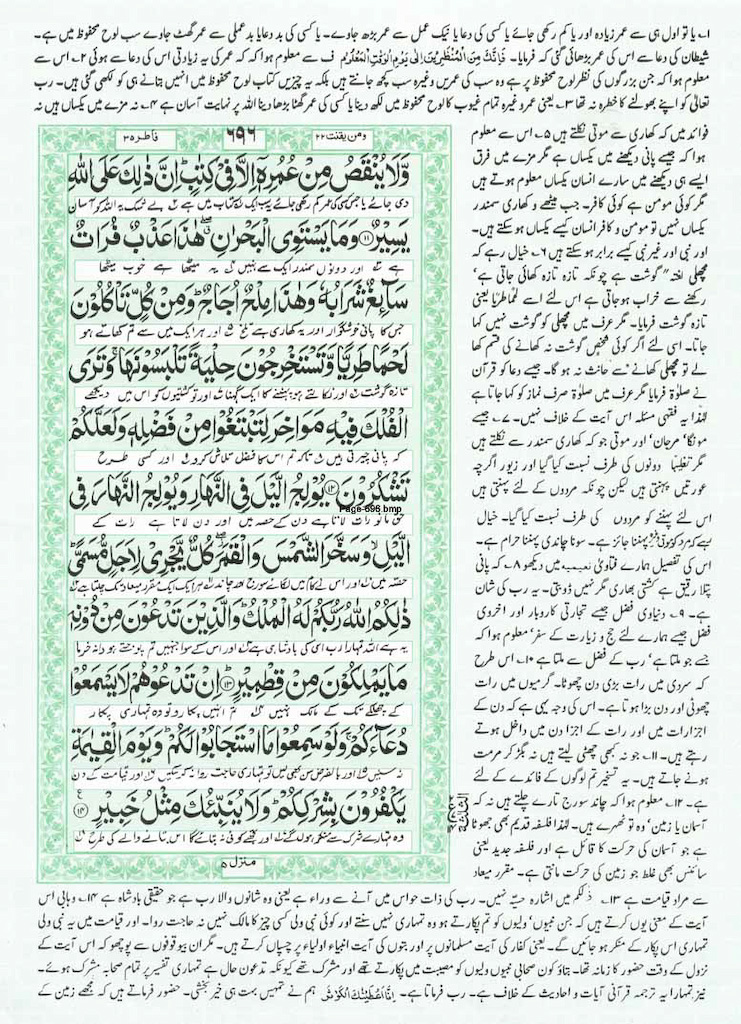 ۱۔ یا تو اول ہی سے عمر زیادہ اور یا کم رکھی جائے یا کسی کی دعا یا نیک عمل سے عمر بڑھ جاوے۔ یا کسی کی بد دعا یا بد عملی سے عمر گھٹ جاوے سب لوح محفوظ میں ہے۔
شیطان کی دعا سے اس کی عمر بڑھائی گئی کہ فرمایا۔ فَاِنَّكَ مِنَ الْمُنْظَرِيْنَ اِلٰى يَوْمِ الْوَقْتِ الْمَعْلُوْمِ ف سے معلوم ہوا کہ کہ عمر کی یہ زیادتی اس کی دعا سے ہوئی ۲۔ اس سے
معلوم ہوا کہ جن بزرگوں کی نظر لوح محفوظ پر ہے وہ سب کی عمریں وغیرہ سب کچھ جانتے ہیں بلکہ یہ چیزیں کتاب لوح محفوظ میں انہیں بتانے ہی کو لکھی گئی ہیں۔ رب
تعالیٰ کو اپنے بھولنے کا خطرہ نہ تھا ۳۔ یعنی عمر وغیرہ تمام غیوب کا لوح محفوظ میں لکھ دینا یا کسی کی عمر گھٹا بڑھا دینا اللہ پر نہایت آسان ہے ۴۔ نہ مزے میں یکساں ہیں نہ
فوائد میں کہ کھاری سے موتی نکلتے ہیں ۵۔ اس سے معلوم
ہوا کہ جیسے پانی دیکھنے میں یکساں ہے مگر مزے میں فرق
ایسے ہی دیکھنے میں سارے انسان یکساں معلوم ہوتے ہیں
مگر کوئی مومن ہے کوئی کافر۔ جب میٹھے و کھاری سمندر
یکساں نہیں تو مومن و کافر انسان کیسے یکساں ہو سکتے ہیں۔
اور نبی اور غیر نبی کیسے برابر ہو سکتے ہیں ۶۔ خیال رہے کہ
مچھلی لغتہ" گوشت ہے چونکہ تازہ تازہ کھائی جاتی ہے'
رکھنے سے خراب ہو جاتی ہے اس لئے اسے لَحْمًا طَرِيًّا یعنی
تازہ گوشت فرمایا۔ مگر عرف میں مچھلی کو گوشت نہیں کہا
جاتا۔ اسی لئے اگر کوئی شخص گوشت نہ کھانے کی قسم کھا
لے تو مچھلی کھانے سے حانث نہ ہو گا۔ جیسے دعا کو قرآن
نے صلوٰۃ فرمایا مگر عرف میں صلوٰۃ صرف نماز کو کہا جاتا ہے
لہٰذا یہ فقہی مسئلہ اس آیت کے خلاف نہیں۔ ۷۔ جیسے
مونگا' مرجان' اور موتی جو کہ کھاری سمندر سے نکلتے ہیں
مگر تغلیبا دونوں کی طرف نسبت کیا گیا اور زیور اگرچہ
عورتیں پہنتی ہیں لیکن چونکہ مردوں کے لئے پہنتی ہیں
اس لئے پہننے کو مردوں کی طرف نسبت کیا گیا۔ خیال
پہننا جائز ہے۔ سونا چاندی پہننا حرام ہے۔
اس کی تفصیل ہمارے فتاویٰ نعیمیہ میں دیکھو ۸۔ کہ پانی
پتلا رقیق ہے کشتی بھاری مگر نہیں ڈوبتی۔ یہ رب کی شان
ہے۔ ۹۔ دنیاوی فضل جیسے تجارتی کاروبار اور اخروی
فضل جیسے ہمارے لئے حج و زیارت کے سفر' معلوم ہوا کہ
جسے جو ملتا ہے' رب کے فضل سے ملتا ہے ۱۰۔ اس طرح
کہ سردی میں رات بڑی دن چھوٹا۔ گرمیوں میں رات
چھوٹی اور دن بڑا ہوتا ہے۔ اس کی وجہ یہی ہے کہ دن کے
اجزا رات میں اور رات کے اجزا دن میں داخل ہوتے
رہتے ہیں۔ ۱۱۔ جو نہ کبھی چھٹی لیتے ہیں نہ بگڑ کر مرمت
ہونے جاتے ہیں۔ یہ تسخیر تم لوگوں کے فائدے کے لئے
ہے۔ ۱۲۔ معلوم ہوا کہ چاند سورج تارے چلتے ہیں نہ کہ
آسمان یا زمین' وہ تو ٹھہرے ہیں۔ لہٰذا فلسفہ قدیم بھی جھوٹا
ہے جو آسمان کی حرکت کا قائل ہے اور فلسفہ جدید یعنی
سائنس بھی غلط جو زمین کی حرکت مانتی ہے۔ مقرر میعاد
ومن یقنت ۲۲ ۶۹۶ فاطر ۳۵
وَلَا يُنْقَصُ مِنْ عُمُرِهٖۤ اِلَّا فِيْ كِتٰبٍ ؕ اِنَّ ذٰلِكَ عَلَى اللّٰهِ
دی جائے یا جس کسی کی عمر کم رکھی جائے یہ سب ایک کتاب میں ہے بے شک یہ اللہ کو آسان
يَسِيْرٌ ﴿۱۱﴾ وَمَا يَسْتَوِي الْبَحْرٰنِ ۖ هٰذَا عَذْبٌ فُرَاتٌ
ہے اور دونوں سمندر ایک سے نہیں یہ میٹھا ہے خوب میٹھا
سَآئِغٌ شَرَابُهٗ وَهٰذَا مِلْحٌ اُجَاجٌ ؕ وَمِنْ كُلٍّ تَاْكُلُوْنَ
جس کا پانی خوشگوار اور یہ کھاری ہے تلخ اور ہر ایک میں سے تم کھاتے ہو
لَحْمًا طَرِيًّا وَّتَسْتَخْرِجُوْنَ حِلْيَةً تَلْبَسُوْنَهَا ۚ وَتَرَى
تازہ گوشت اور نکالتے ہو پہننے کا ایک گہنا اور تو کشتیوں کو اس میں دیکھے
الْفُلْكَ فِيْهِ مَوَاخِرَ لِتَبْتَغُوْا مِنْ فَضْلِهٖ وَلَعَلَّكُمْ
کہ پانی چیرتی ہیں تاکہ تم اس کا فضل تلاش کرو اور کسی طرح
تَشْكُرُوْنَ ﴿۱۲﴾ يُوْلِجُ الَّيْلَ فِي النَّهَارِ وَيُوْلِجُ النَّهَارَ فِي
Page-696.bmp
حق مانو رات لاتا ہے دن کے حصہ میں اور دن لاتا ہے رات کے
الَّيْلِ ۙ وَسَخَّرَ الشَّمْسَ وَالْقَمَرَ ۖ كُلٌّ يَّجْرِيْ لِاَجَلٍ مُّسَمًّى ؕ
حصہ میں اور اس نے کام میں لگائے سورج اور چاند ہر ایک ایک مقرر میعاد تک چلتا ہے
ذٰلِكُمُ اللّٰهُ رَبُّكُمْ لَهُ الْمُلْكُ ؕ وَالَّذِيْنَ تَدْعُوْنَ مِنْ دُوْنِهٖ
یہ ہے اللہ تمہارا رب اسی کی بادشاہی ہے اور اس کے سوا جنہیں تم پوجتے ہو دانۂ خرما
مَا يَمْلِكُوْنَ مِنْ قِطْمِيْرٍ ﴿۱۳﴾ اِنْ تَدْعُوْهُمْ لَا يَسْمَعُوْا
کے چھلکے تک کے مالک نہیں تم انہیں پکارو تو وہ تمہاری پکار
دُعَآءَكُمْ ۚ وَلَوْ سَمِعُوْا مَا اسْتَجَابُوْا لَكُمْ ؕ وَيَوْمَ الْقِيٰمَةِ
نہ سنیں اور بالفرض سن بھی لیں تو تمہاری حاجت روا نہ کر سکیں اور قیامت کے دن
يَكْفُرُوْنَ بِشِرْكِكُمْ ؕ وَلَا يُنَبِّئُكَ مِثْلُ خَبِيْرٍ ﴿۱۴﴾
وہ تمہارے شرک سے منکر ہوں گے اور تجھے کوئی نہ بتائے گا اس بتانے والے کی طرح
منزل ۵
سے مراد قیامت ہے ۱۳۔ ذٰلِکُم میں اشارہ حسیّہ نہیں۔ رب کی ذات حواس میں آنے سے وراء ہے یعنی وہ شانوں والا رب ہے جو حقیقی بادشاہ ہے ۱۴۔ وہابی اس
آیت کے معنٰے یوں کرتے ہیں کہ جن نبیوں' ولیوں کو تم پکارتے ہو وہ تمہاری نہیں سنتے اور کوئی نبی ولی کسی چیز کا مالک نہیں نہ حاجت روا۔ اور قیامت میں یہ نبی ولی
تمہاری اس پکار کے منکر ہو جائیں گے۔ یعنی کفار کی آیت مسلمانوں پر اور بتوں کی آیت انبیاء اولیاء پر چسپاں کرتے ہیں۔ مگر ان بیوقوفوں سے پوچھو کہ اس آیت کے
نزول کے وقت حضور کا زمانہ تھا۔ بتاؤ کون صحابی نبیوں ولیوں کو مصیبت میں پکارتے تھے اور مشرک تھے کیونکہ تدعون حال ہے تمہاری تفسیر پر تمام صحابہ مشرک ہوئے۔
نیز تمہارا یہ ترجمہ قرآنی آیات و احادیث کے خلاف ہے۔ رب فرماتا ہے۔ اِنَّآ اَعْطَيْنٰكَ الْكَوْثَرَ ہم نے تمہیں بہت ہی خیر بخشی۔ حضور فرماتے ہیں کہ مجھے زمین کے